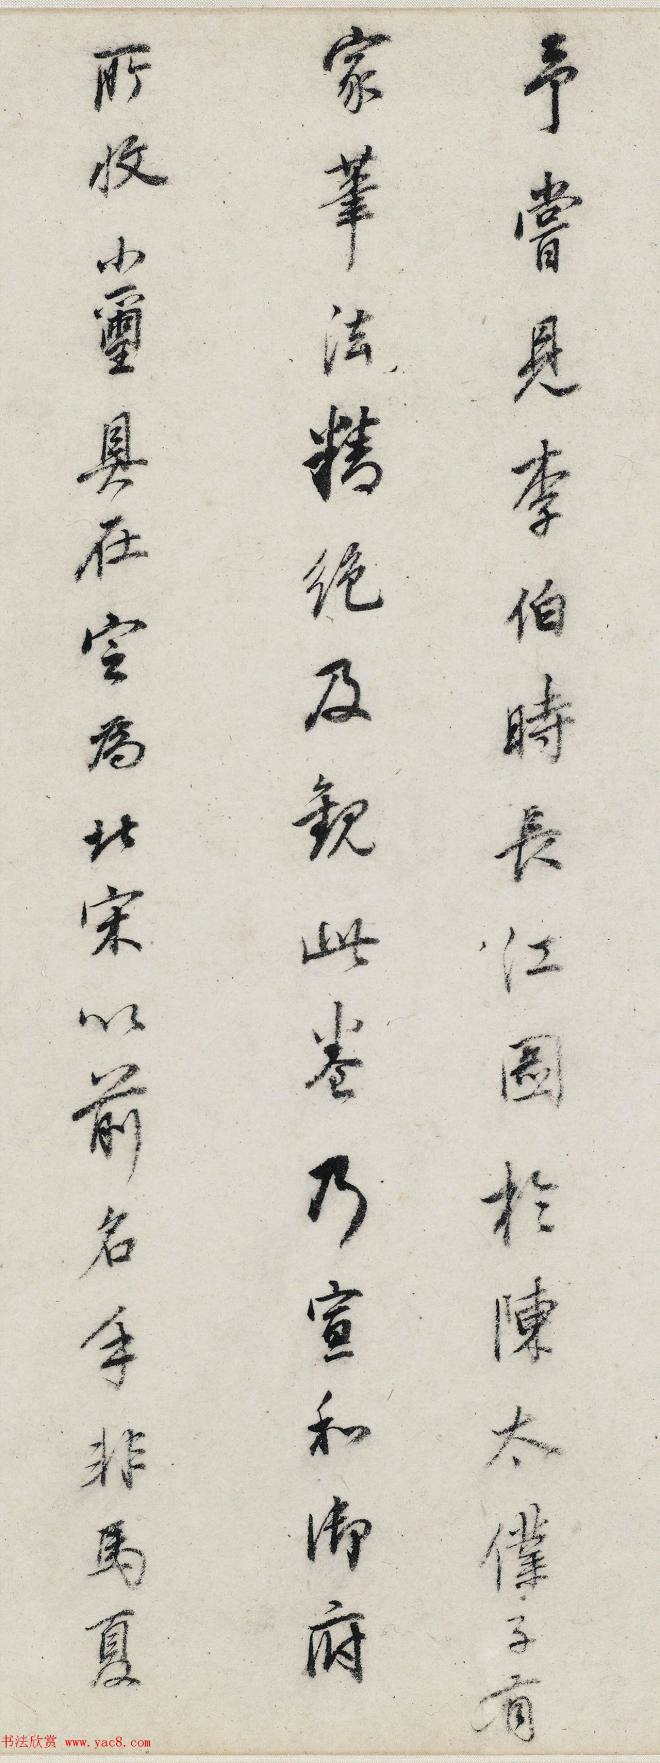 予嘗見李伯時長江圖於陳太僕子有
家筆法精絕及觀此卷乃宣和御府
所收小璽具在定為北宋以前名手非馬夏
书法欣赏 www.yac8.com